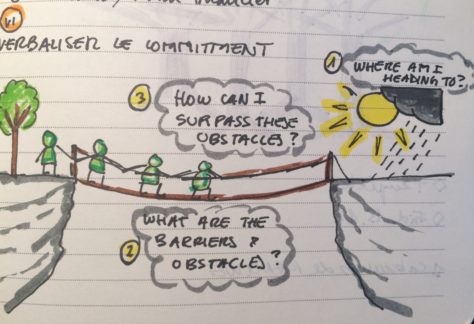 VI
VERBALISER LE COMMITMENT
1
WHERE AM I
HEADING TO?
3
HOW CAN I
SURPASS THESE
OBSTACLES?
WHAT ARE THE
BARRIERS &
OBSTACLES?
2